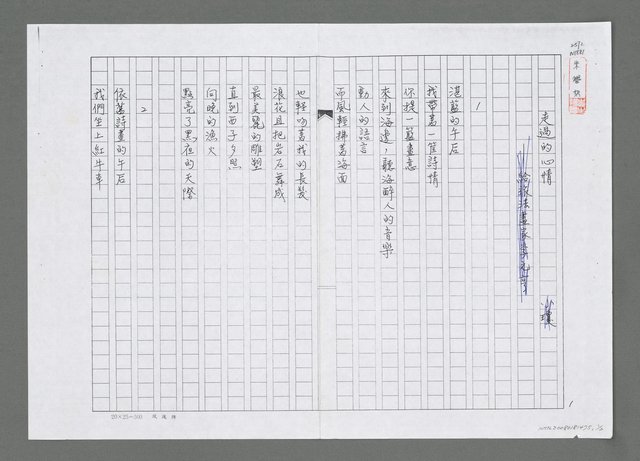 走過的心情
給旅法畫家
1
湛藍的午后
我帶著一筐詩情
你提一籃畫意
來到海邊，聽海醉人的音樂
動人的語言
而風輕拂著海面
也輕吻著我的長髮
浪花且把岩石舞成
最美麗的雕塑
直到西子夕照
向晚的漁火
點亮了黑夜的天際
2
依舊詩畫的午后
我們坐上紅牛車
20×25=500
1